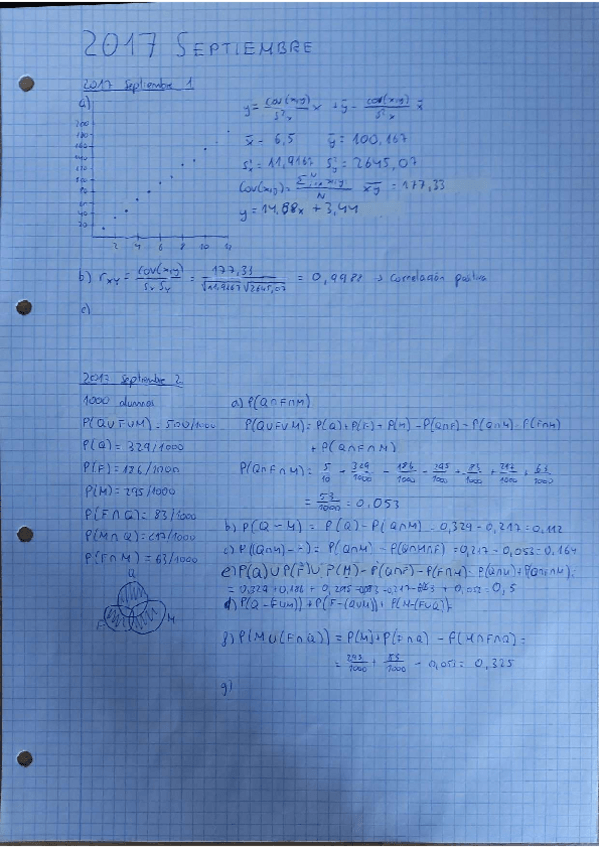 2017 SEPTIEMBRE
2017 Septiembre 1
a)
y = cov(x,y)/s²x x + ȳ - cov(x,y)/s²x x̄
x̄ = 6,5 ȳ = 100,167
s²x = 11,9167 s²y = 2645,07
cov(x,y) = - x̄ȳ = 177,33
y = 14,88x + 3,44
200
180
160
2 4 6 8 10
b) rxy = cov(x,y)/sx sy = 177,33/√11,9167 √2645,07 = 0,9988 → correlación positiva
c)
2017 Septiembre 2
1000 alumnos
P(Q∪F∪M) = 500/1000
P(Q) = 329/1000
P(F) = 186/1000
P(M) = 295/1000
P(F∩Q) = 83/1000
P(M∩Q) = 217/1000
P(F∩M) = 63/1000
Q
F M
a) P(Q∩F∩M)
P(Q∪F∪M) = P(Q) + P(F) + P(M) - P(Q∩F) - P(Q∩M) - P(F∩M)
+ P(Q∩F∩M)
P(Q∩F∩M) = 5/10 - 329/1000 - 186/1000 - 295/1000 + 83/1000 + 217/1000 + 63/1000
= 53/1000 = 0,053
b) P(Q - M) = P(Q) - P(Q∩M) = 0,329 - 0,217 = 0,112
c) P((Q∩M) - F) = P(Q∩M) - P(Q∩M∩F) = 0,217 - 0,053 = 0,164
e) P(Q) ∪ P(F) ∪ P(M) - P(Q∩F) - P(F∩M) - P(Q∩M) + P(Q∩F∩M) =
= 0,329 + 0,186 + 0,295 - 0,083 - 0,217 - + 0,053 = 0,5
d) P(Q - (F∪M)) + P(F - (Q∪M)) + P(M - (F∪Q)) =
f) P(M∪(F∩Q)) = P(M) + P(F∩Q) - P(M∩F∩Q) =
= 295/1000 + 83/1000 - 0,053 = 0,325
g)